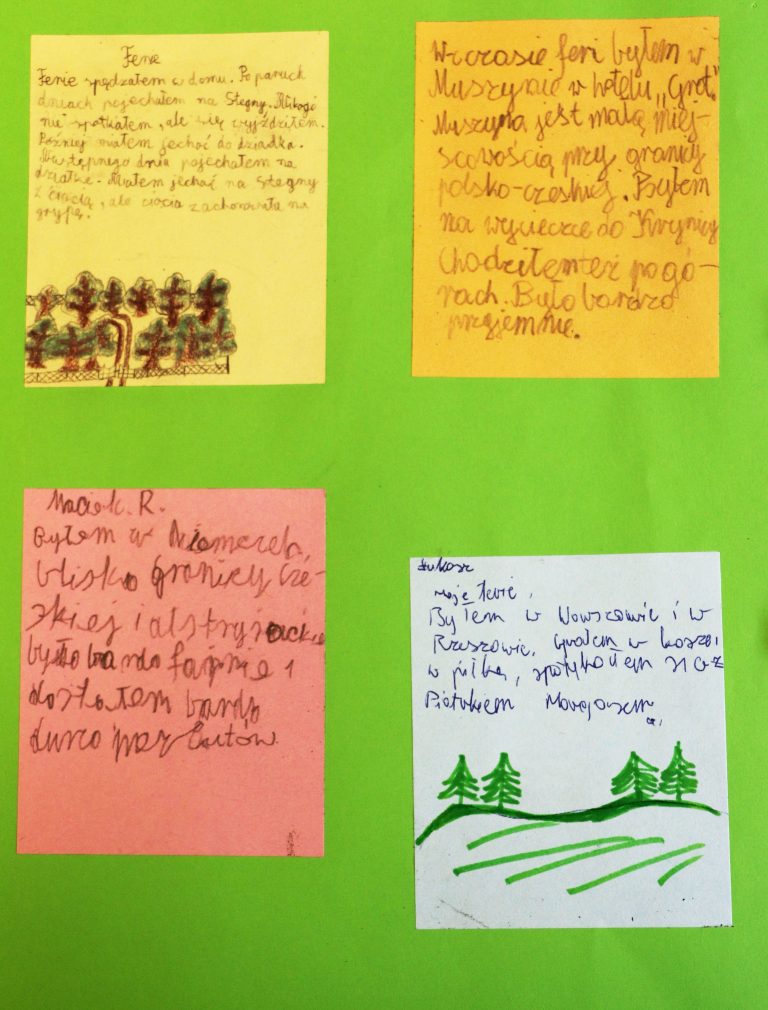 Ferie
Ferie spędzałem w domu. Po paruch
dniach pojechałem na Stegny. Nikogo
nie spotkałem, ale się wyjździłem.
Później miałem jechać do dziadka.
Następnego dnia pojechałem na
działkę. Miałem jechać na Stegny
z ciocią, ale ciocia zachorowała na
grypę.
W czasie feri byłem w
Muszynie w hotelu „Grot."
Muszyna jest małą miej-
scowością przy granicy
polsko-czeskiej. Byłem
na wycieczce do Krynicy
Chodziłem też po gó-
rach. Było bardzo
przyjemnie.
Maciek. R.
Byłem w Niemczech,
blisko granicy cze-
skiej i
było bardo fajnie i
dostałem bardo
durzo
Łukasz
moje ferie.
Byłem w i w
Rzeszowie, grałem w kosza,
w piłkę, spotykałem się z